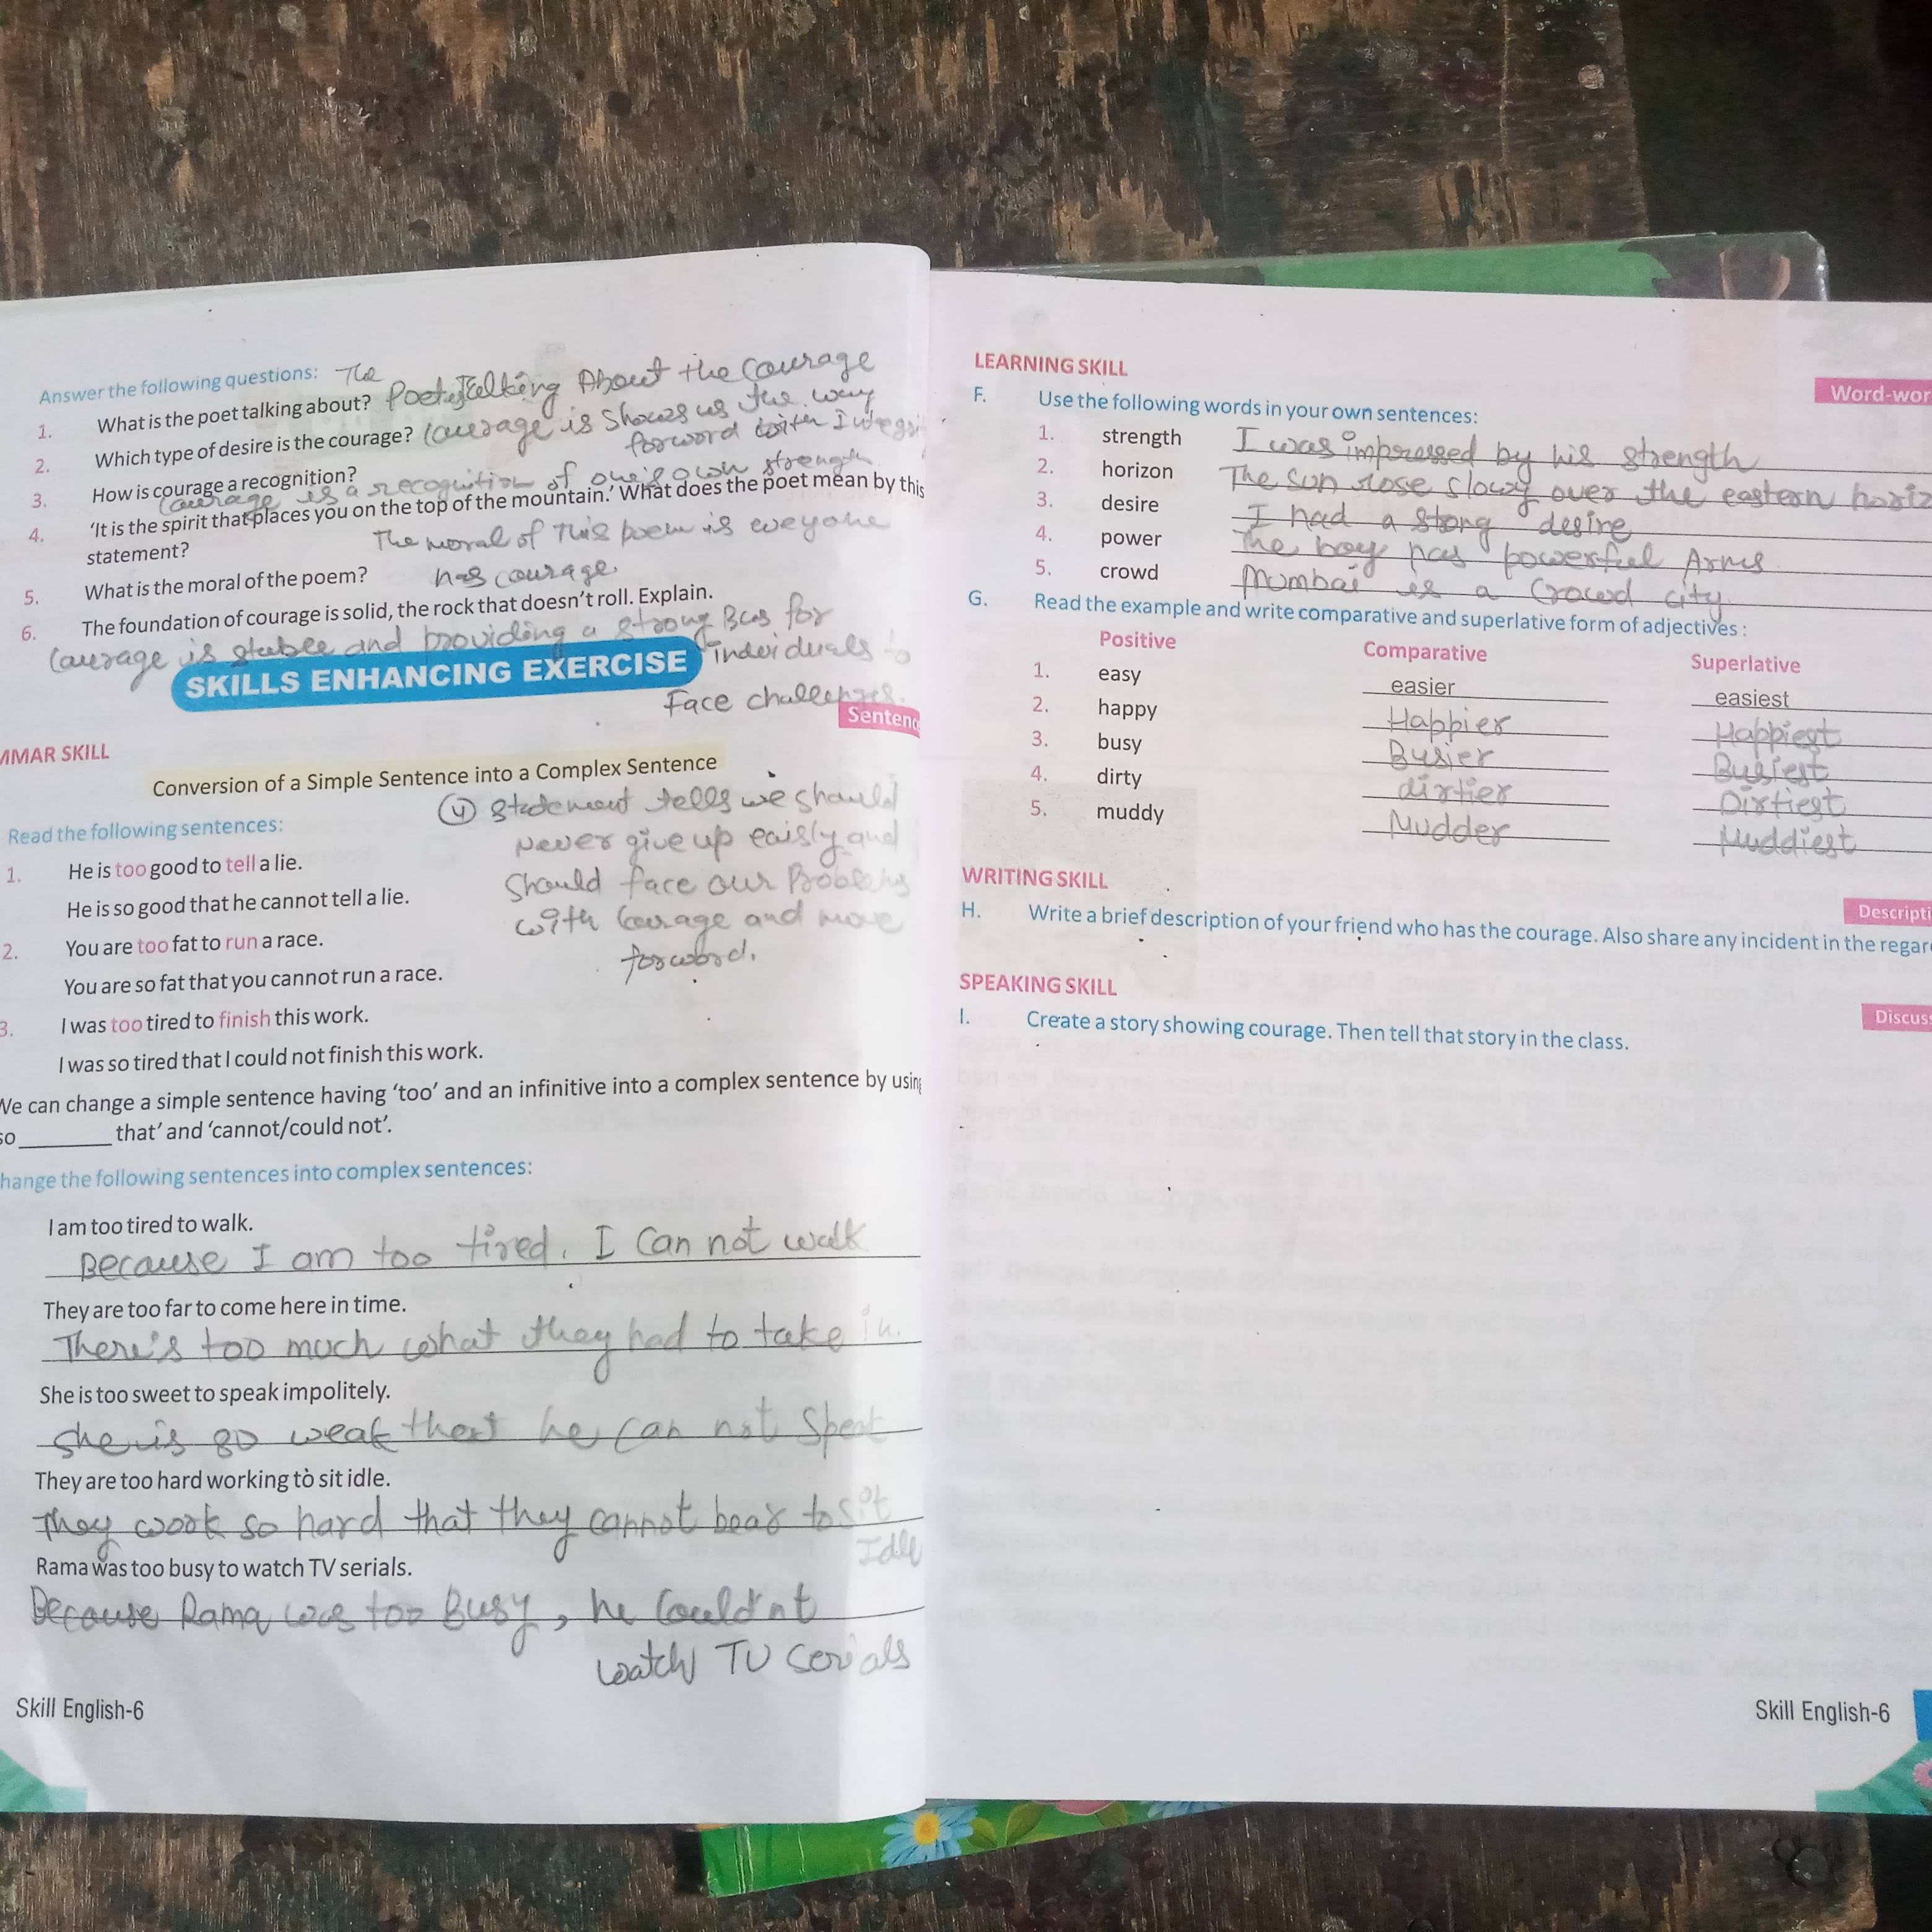 Answer the following questions: The
1. What is the poet talking about? Poet is Talking About the Courage
2. Which type of desire is the courage? Courage is Shows us the way
forword with Integri
3. How is courage a recognition?
Courage is a recognition of one's own strength
4. 'It is the spirit that places you on the top of the mountain.' What does the poet mean by this
statement?
The moral of This poem is eveyone
5. What is the moral of the poem? has courage.
6. The foundation of courage is solid, the rock that doesn't roll. Explain.
Courage is stable and providing a strong Bas for
individuals to
SKILLS ENHANCING EXERCISE
Face challenges.
Sentenc
MMAR SKILL
Conversion of a Simple Sentence into a Complex Sentence
④ statement tells we should
never give up eaisly and
should face our Problems
with Courage and move
forword.
Read the following sentences:
1. He is too good to tell a lie.
He is so good that he cannot tell a lie.
2. You are too fat to run a race.
You are so fat that you cannot run a race.
3. I was too tired to finish this work.
I was so tired that I could not finish this work.
We can change a simple sentence having 'too' and an infinitive into a complex sentence by using
so ________ that' and 'cannot/could not'.
hange the following sentences into complex sentences:
I am too tired to walk.
Because I am too tired, I Can not walk
They are too far to come here in time.
There's too much what they had to take in.
She is too sweet to speak impolitely.
she is so weak that he can not Speat
They are too hard working to sit idle.
They work so hard that they cannot bear to sit
Idle
Rama was too busy to watch TV serials.
Because Rama was too Busy, he Could'nt
watch TV serials
Skill English-6
LEARNING SKILL
Word-wor
F. Use the following words in your own sentences:
1. strength I was impressed by his strength
2. horizon The sun rose slowy over the eastern horiz
3. desire I had a stong desire
4. power The boy has powerful Arms
5. crowd Mumbai is a Crowd city.
G. Read the example and write comparative and superlative form of adjectives :
Positive Comparative Superlative
1. easy easier easiest
2. happy Happier Happiest
3. busy Busier Busiest
4. dirty dirtier Dirtiest
5. muddy Mudder Muddiest
WRITING SKILL
Descripti
H. Write a brief description of your friend who has the courage. Also share any incident in the regar
SPEAKING SKILL
Discus
I. Create a story showing courage. Then tell that story in the class.
Skill English-6